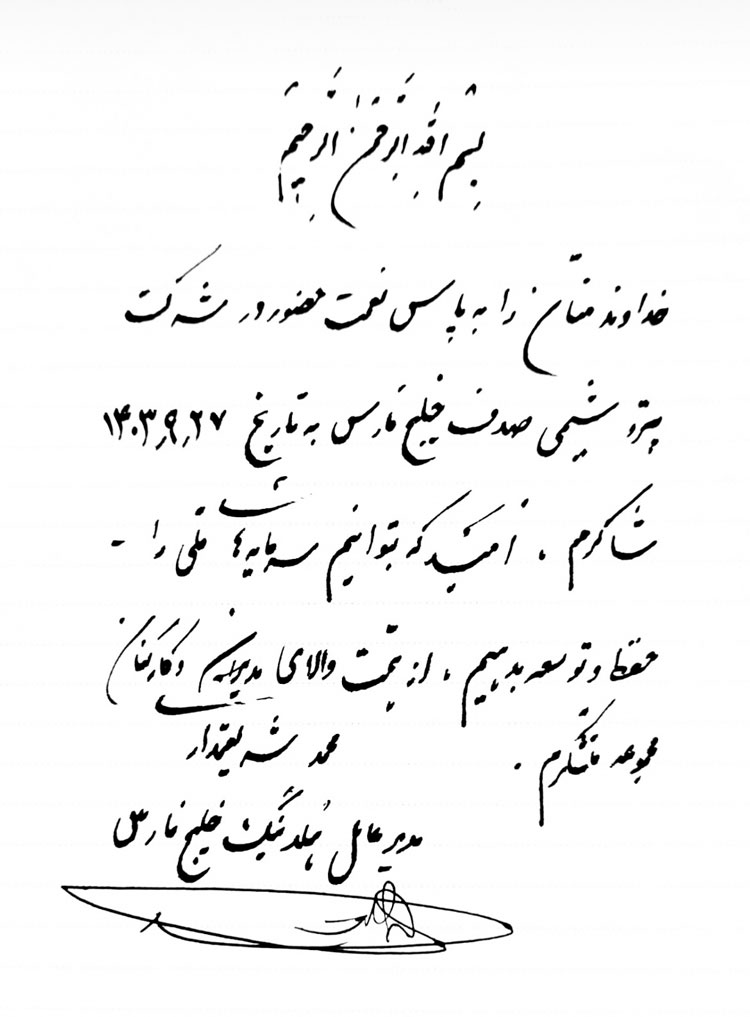 بسم الله الرحمن الرحیم
خداوند منّان را به پاس نعمت حضور در شرکت
پتروشیمی صدف خلیج فارس به تاریخ ۱۴۰۳٫۹٫۲۷
شاکرم ، امید که بتوانیم سرمایه‌های ملی را -
حفظ و توسعه بدهیم ، از همّت والای مدیران و کارکنان
مجموعه متشکرم .
محمد شریعتمدار
مدیر عامل هُلدینگ خلیج فارس